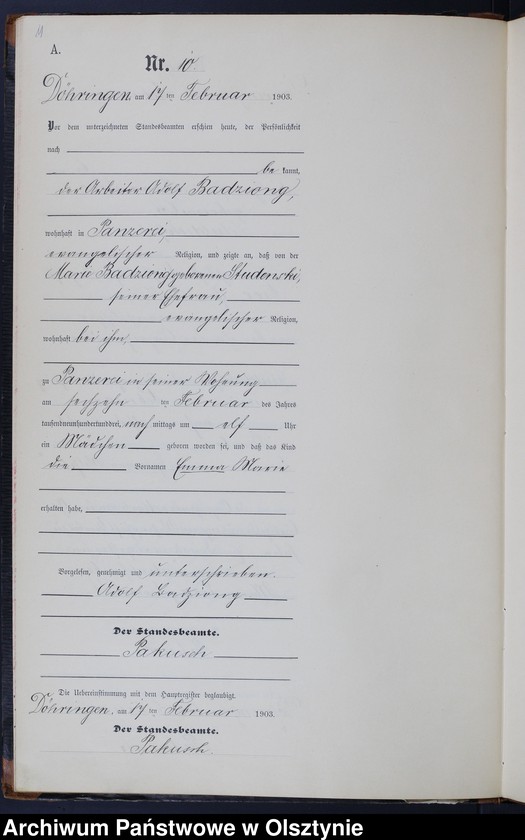 A.
Nr. 10
Döhringen, am 17 ten Februar 1903.
Vor dem unterzeichneten Standesbeamten erschien heute, der Persönlichkeit
nach
be kannt,
der Arbeiter Adolf Badziong,
wohnhaft in Panzerei,
evangelischer Religion, und zeigte an, daß von der
Marie Badziong geborenen
seiner Ehefrau,
evangelischer Religion,
wohnhaft bei ihm,
zu Panzerei in seiner Wohnung
am sechzehn ten Februar des Jahres
tausendneunhundertunddrei, nach mittags um elf Uhr
ein Mädchen geboren worden sei, und daß das Kind
die Vornamen Emma Marie
erhalten habe,
Vorgelesen, genehmigt und unterschrieben.
Adolf Badziong
Der Standesbeamte.
Pakusch
Die Uebereinstimmung mit dem Hauptregister beglaubigt.
Döhringen, am 17 ten Februar 1903.
Der Standesbeamte.
Pakusch.
Archiwum Państwowe w Olsztynie